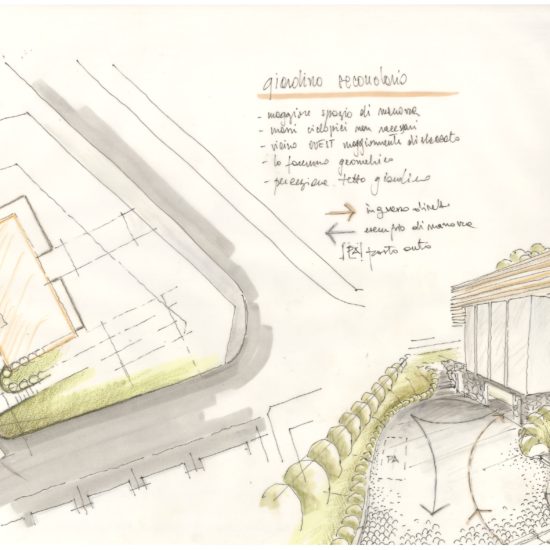 giardino secondario
- maggiore spazio di manovra
- massi ciclopici non necessari
- vicino OVEST maggiormente distaccato
- lo faremmo geometrico
- percezione tetto giardino
ingresso diretto
esempio di manovra
[PA] posto auto
PA